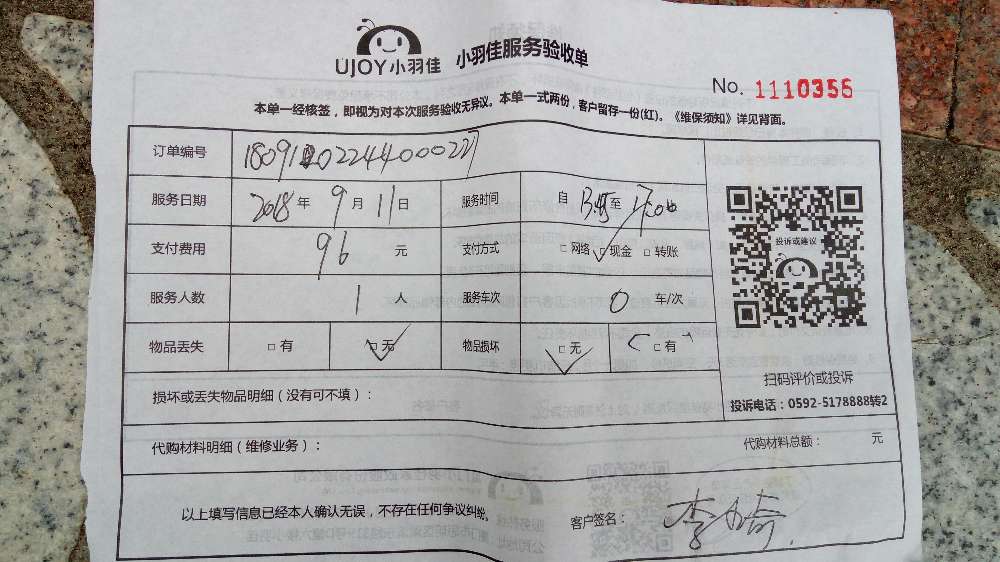 UJOY小羽佳 小羽佳服务验收单
No. 1110356
本单一经核签，即视为对本次服务验收无异议。本单一式两份，客户留存一份(红)。《维保须知》详见背面。
订单编号
服务日期 2018 年 9 月 11 日 服务时间 自 至
支付费用 96 元 支付方式 □ 网络 □ 现金 □ 转账
投诉或建议
服务人数 1 人 服务车次 0 车/次
物品丢失 □ 有 □ 无 物品损坏 □ 无 □ 有
扫码评价或投诉
损坏或丢失物品明细（没有可不填）：
投诉电话：0592-5178888转2
代购材料明细（维修业务）： 代购材料总额： 元
以上填写信息已经本人确认无误，不存在任何争议纠纷。 客户签名：